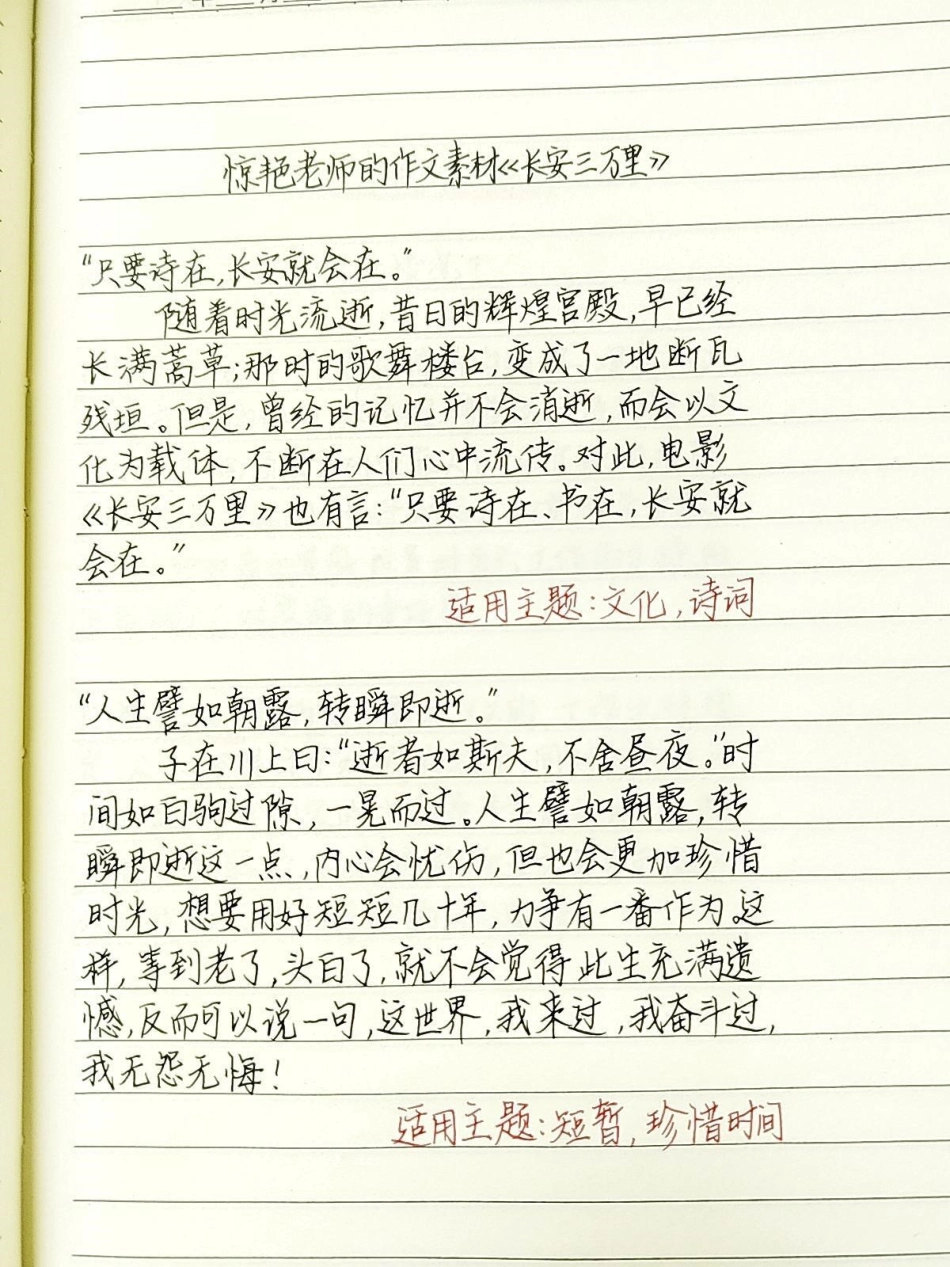 惊艳老师的作文素材《长安三万里》
“只要诗在,长安就会在。”
随着时光流逝,昔日的辉煌宫殿,早已经
长满蒿草;那时的歌舞楼台,变成了一地断瓦
残垣。但是,曾经的记忆并不会消逝,而会以文
化为载体,不断在人们心中流传。对此,电影
《长安三万里》也有言:“只要诗在、书在,长安就
会在。”
适用主题:文化,诗词
“人生譬如朝露,转瞬即逝。”
子在川上曰:“逝者如斯夫,不舍昼夜。”时
间如白驹过隙,一晃而过。人生譬如朝露,转
瞬即逝这一点,内心会忧伤,但也会更加珍惜
时光,想要用好短短几十年,力争有一番作为。这
样,等到老了,头白了,就不会觉得此生充满遗
憾,反而可以说一句,这世界,我来过,我奋斗过,
我无怨无悔!
适用主题:短暂,珍惜时间